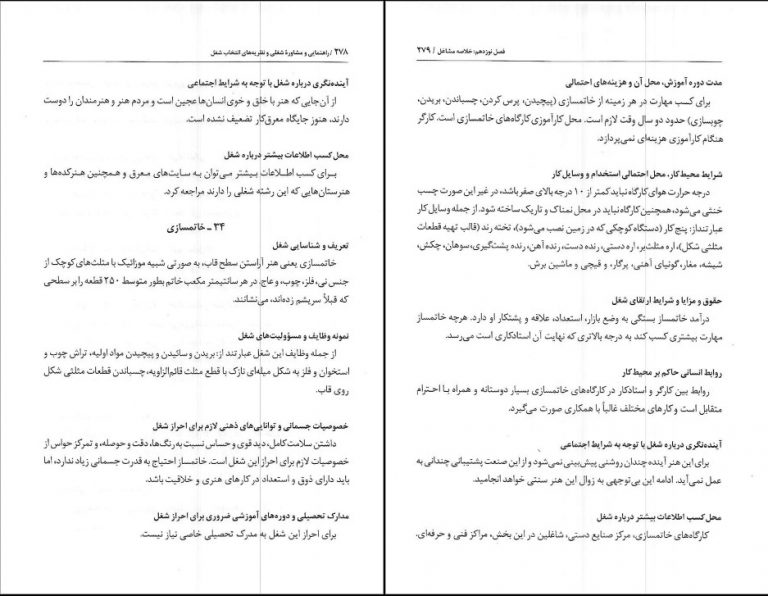 ۲۷۸ / راهنمایی و مشاورهٔ شغلی و نظریه‌های انتخاب شغل
آینده‌نگری درباره شغل با توجه به شرایط اجتماعی
از آن‌جایی که هنر با خلق و خوی انسان‌ها عجین است و مردم هنر و هنرمندان را دوست
دارند، هنوز جایگاه معرق‌کار تضعیف نشده است.
محل کسب اطلاعات بیشتر درباره شغل
بـرای کسب اطـلاعات بیـشتر می‌توان بـه سـایت‌های معـرق و همچنین هنرکده‌ها و
هنرستان‌هایی که این رشته شغلی را دارند مراجعه کرد.
۳۴ ـ خاتمسازی
تعریف و شناسایی شغل
خاتمسازی یعنی هنر آراستن سطح قاب، به صورتی شبیه موزائیک با مثلث‌های کوچک از
جنس نی، فلز، چوب، و عاج. در هر سانتیمتر مکعب خاتم بطور متوسط ۲۵۰ قطعه را بر سطحی
که قبلاً سریشم زده‌اند، می‌نشانند.
نمونه وظایف و مسؤولیت‌های شغل
از جمله وظایف این شغل عبارتند از: بریدن و سائیدن و پیچیدن مواد اولیه، تراش چوب و
استخوان و فلز به شکل میله‌ای نازک با قطع مثلث قائم‌الزاویه، چسباندن قطعات مثلثی شکل
روی قاب.
خصوصیات جسمانی و توانایی‌های ذهنی لازم برای احراز شغل
داشتن سلامت کامل، دید قوی و حساس نسبت به رنگ‌ها، دقت و حوصله، و تمرکز حواس از
خصوصیات لازم برای احراز این شغل است. خاتمساز احتیاج به قدرت جسمانی زیاد ندارد، اما
باید دارای ذوق و استعداد در کارهای هنری و خلاقیت باشد.
مدارک تحصیلی و دوره‌های آموزشی ضروری برای احراز شغل
برای احراز این شغل به مدرک تحصیلی خاصی نیاز نیست.
فصل نوزدهم: خلاصه مشاغل / ۲۷۹
مدت دوره آموزش، محل آن و هزینه‌های احتمالی
برای کسب مهارت در هر زمینه از خاتمسازی (پیچیدن، پرس کردن، چسباندن، بریدن،
چوبسازی) حدود دو سال وقت لازم است. محل کارآموزی کارگاه‌های خاتمسازی است. کارگر
هنگام کارآموزی هزینه‌ای نمی‌پردازد.
شرایط محیط کار، محل احتمالی استخدام و وسایل کار
درجه حرارت هوای کارگاه نباید کمتر از ۱۰ درجه بالای صفر باشد، در غیر این صورت چسب
خنثی می‌شود، همچنین کارگاه نباید در محل نمناک و تاریک ساخته شود. از جمله وسایل کار
عبارتنداز: پنج کار (دستگاه کوچکی که در زمین نصب می‌شود)، تخته رند (قالب تهیه قطعات
مثلثی شکل)، اره مثلث‌بر، اره دستی، رنده دست، رنده آهن، رنده پشت‌گیری، سوهان، چکش،
شیشه، مغار، گونیای آهنی، پرگار، و قیچی و ماشین برش.
حقوق و مزایا و شرایط ارتقای شغل
درآمد خاتمساز بستگی به وضع بازار، استعداد، علاقه و پشتکار او دارد. هرچه خاتمساز
مهارت بیشتری کسب کند به درجه بالاتری که نهایت آن استادکاری است می‌رسد.
روابط انسانی حاکم بر محیط کار
روابط بین کارگر و استادکار در کارگاه‌های خاتمسازی بسیار دوستانه و همراه بـا احـترام
متقابل است و کارهای مختلف غالباً با همکاری صورت می‌گیرد.
آینده‌نگری درباره شغل با توجه به شرایط اجتماعی
برای این هنر آینده چندان روشنی پیش‌بینی نمی‌شود و از این صنعت پشتیبانی چندانی به
عمل نمی‌آید. ادامه این بی‌توجهی به زوال این هنر سنتی خواهد انجامید.
محل کسب اطلاعات بیشتر درباره شغل
کارگاه‌های خاتمسازی، مرکز صنایع دستی، شاغلین در این بخش، مراکز فنی و حرفه‌ای.